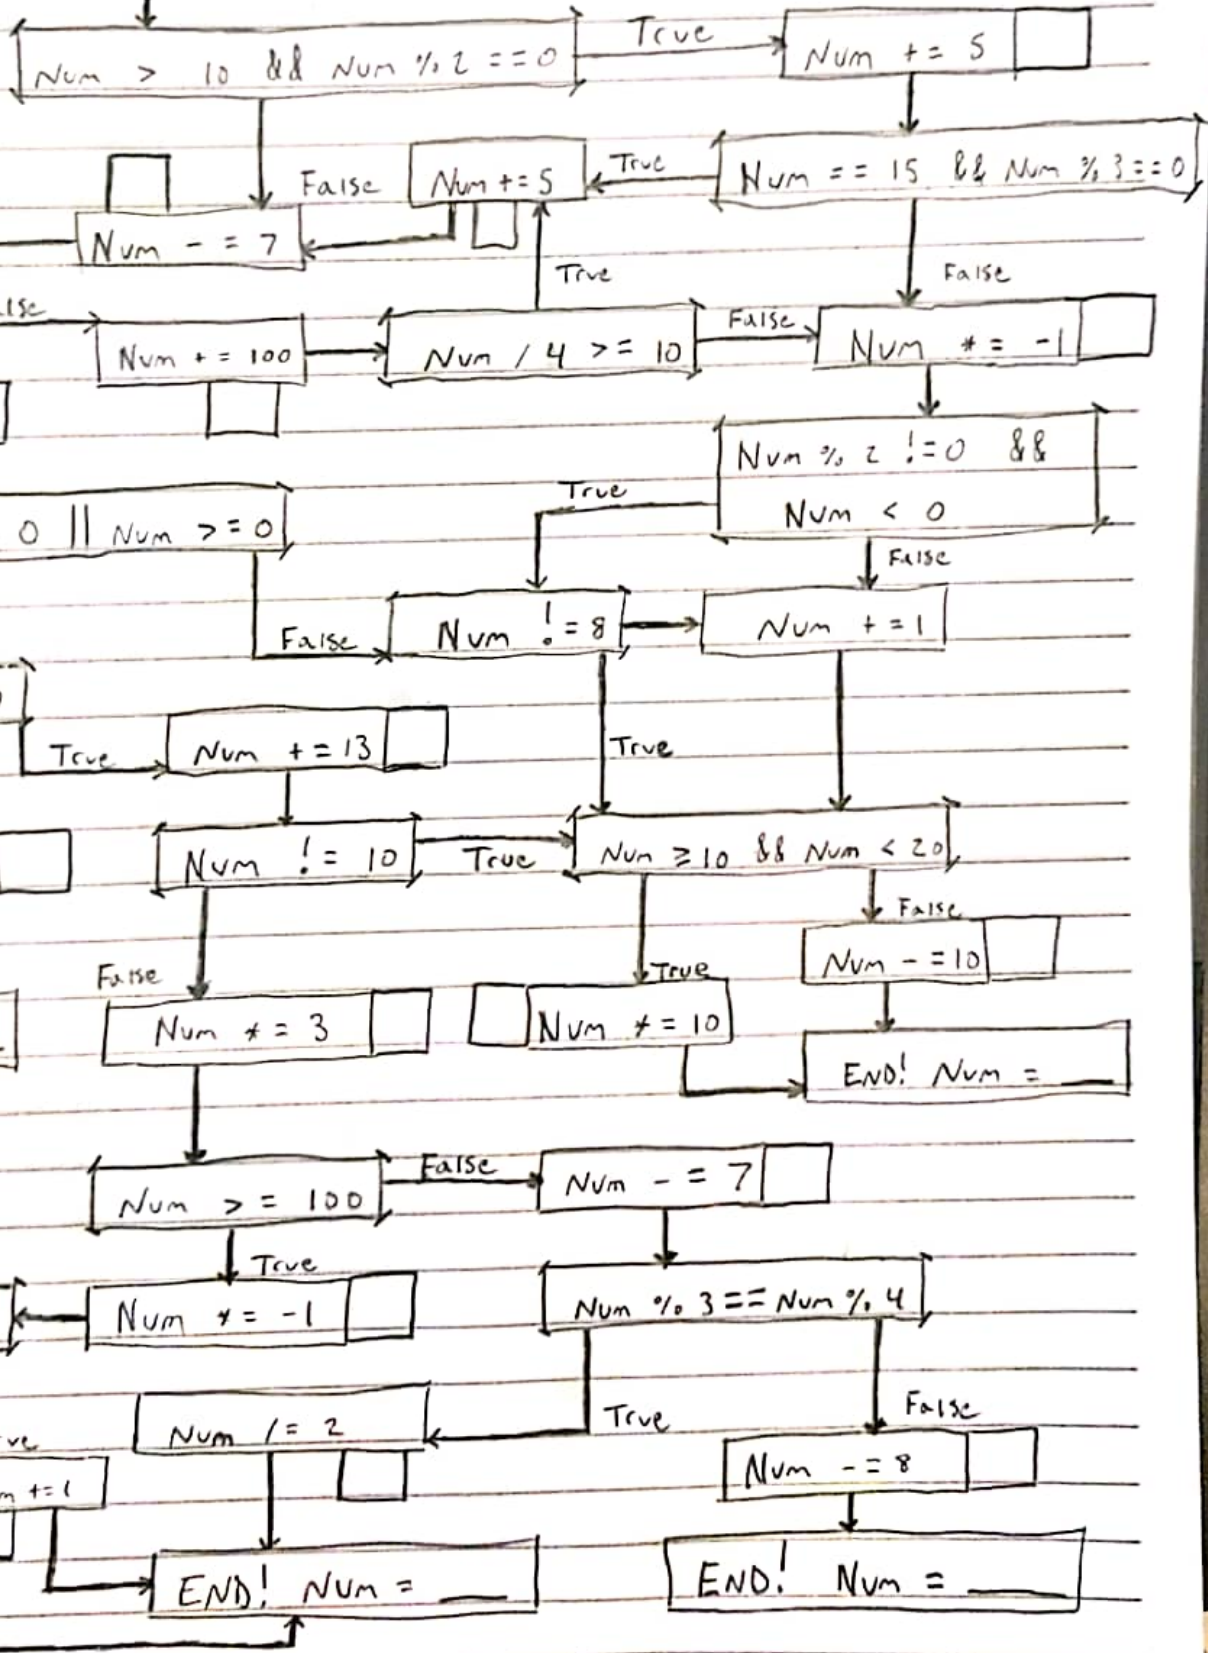 True
Num > 10 && Num % 2 == 0
Num += 5
False
Num += 5
True
Num == 15 && Num % 3 == 0
Num -= 7
True
False
lse
Num += 100
Num / 4 >= 10
False
Num *= -1
Num % 2 != 0 &&
Num < 0
True
0 || Num >= 0
False
False
Num != 8
Num += 1
True
Num += 13
True
Num != 10
True
Num ≥ 10 && Num < 20
False
Num -= 10
False
True
Num *= 3
Num *= 10
END! Num = ___
False
Num >= 100
Num -= 7
True
Num *= -1
Num % 3 == Num % 4
True
False
ve
Num /= 2
m += 1
Num -= 8
END! Num = ___
END! Num = ___